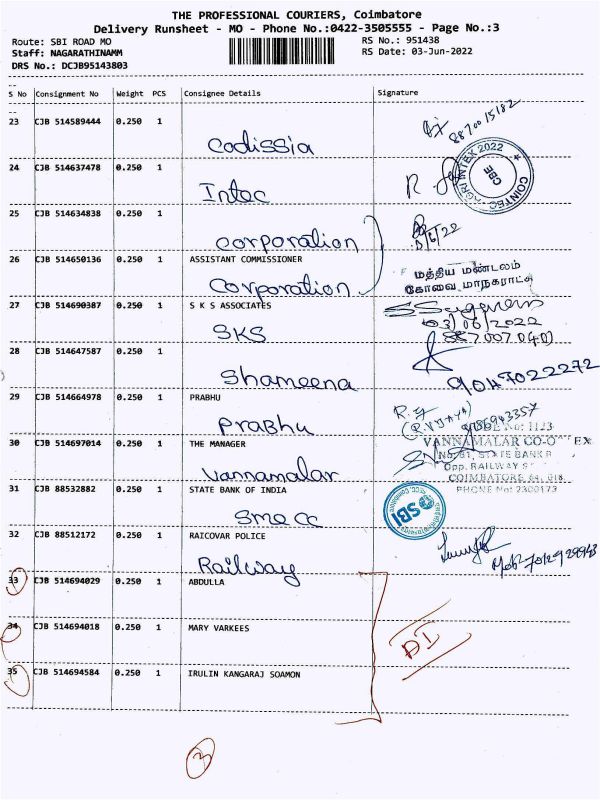 THE PROFESSIONAL COURIERS, Coimbatore
Delivery Runsheet - MO - Phone No.:0422-3505555 - Page No.:3
Route: SBI ROAD MO
RS No.: 951438
Staff: NAGARATHINAMM
RS Date: 03-Jun-2022
DRS No.: DCJB95143803
S No Consignment No Weight PCS Consignee Details Signature
23 CJB 514589444 0.250 1
Codissia
8870015182
24 CJB 514637478 0.250 1
Intec
AGRI INTEX 2022
CBE
25 CJB 514634838 0.250 1
Corporation
3/6/22
26 CJB 514650136 0.250 1 ASSISTANT COMMISSIONER
Corporation
மத்திய மண்டலம்
கோவை மாநகராட்சி
27 CJB 514690387 0.250 1 S K S ASSOCIATES
SKS
03/06/2022
28 CJB 514647587 0.250 1
Shameena
9047022272
29 CJB 514664978 0.250 1 PRABHU
Prabhu
30 CJB 514697014 0.250 1 THE MANAGER
Vannamalar
No: 1123
VANNAMALAR CO-O
STATE BANK R
Opp. RAILWAY
COIMBATORE
PHONE No: 2300173
31 CJB 88532882 0.250 1 STATE BANK OF INDIA
SMECC
SBI
32 CJB 88512172 0.250 1 RAICOVAR POLICE
Railway
33 CJB 514694029 0.250 1 ABDULLA
34 CJB 514694018 0.250 1 MARY VARKEES
DI
35 CJB 514694584 0.250 1 IRULIN KANGARAJ SOAMON
3